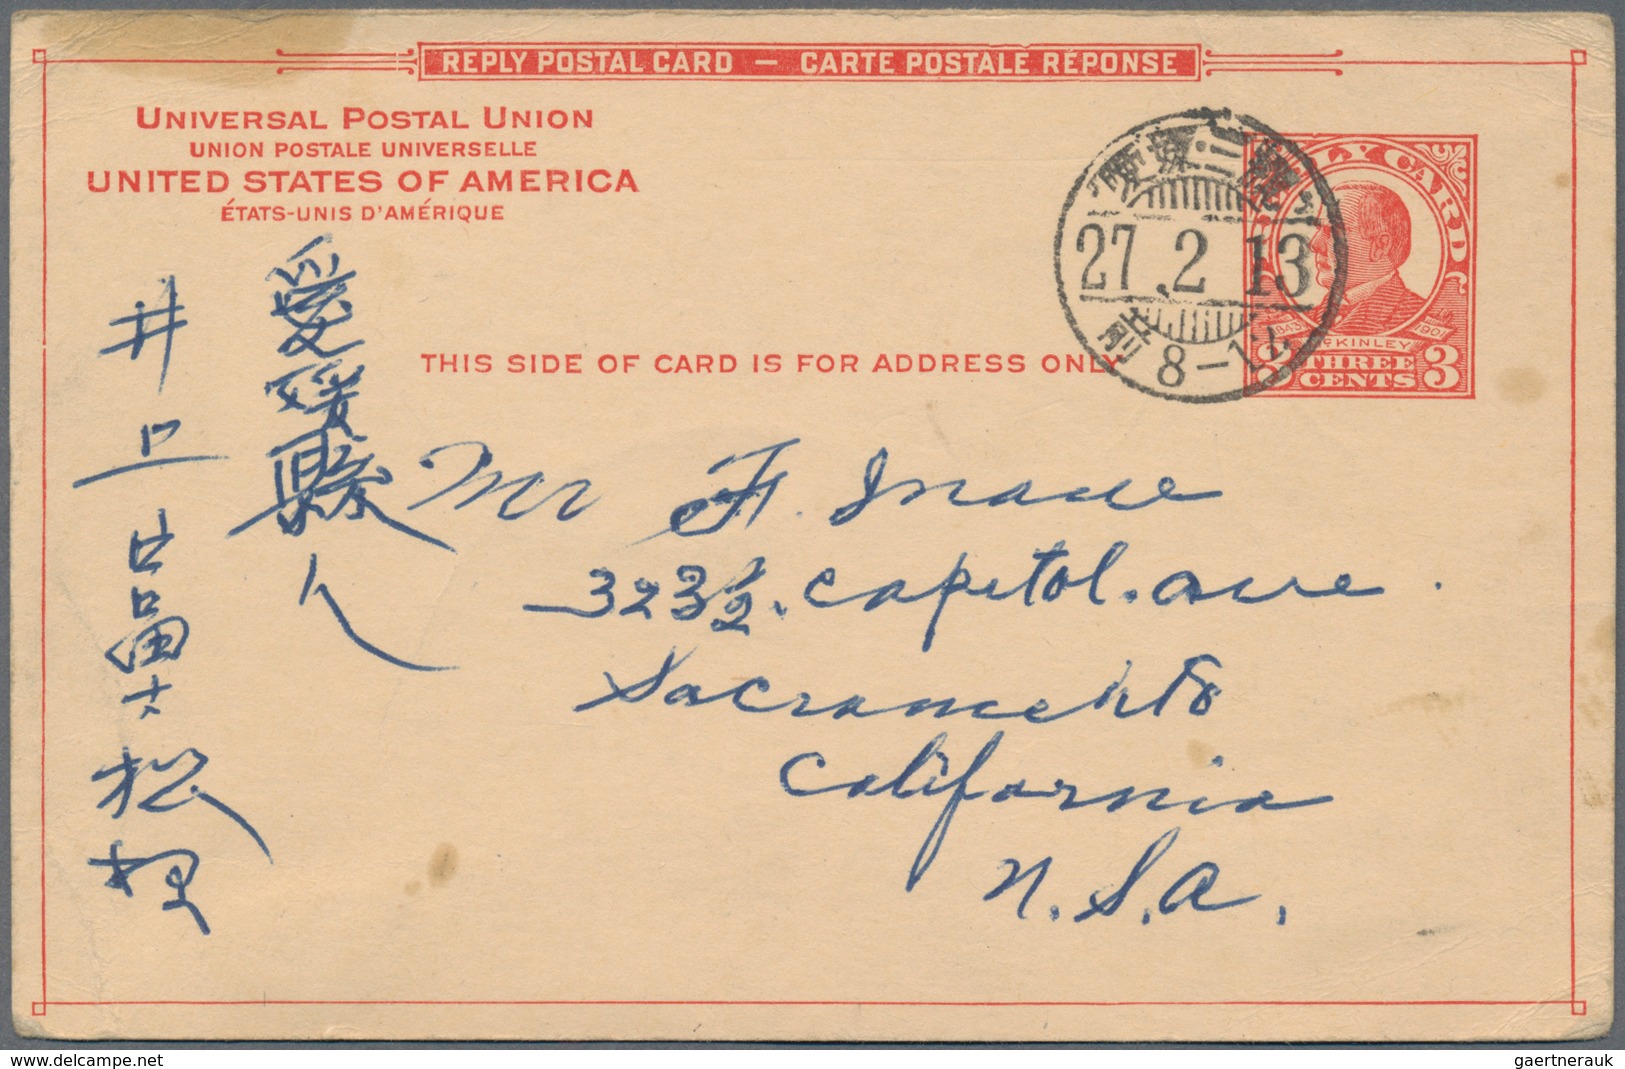 REPLY POSTAL CARD — CARTE POSTALE RÉPONSE
UNIVERSAL POSTAL UNION
UNION POSTALE UNIVERSELLE
UNITED STATES OF AMERICA
ÉTATS-UNIS D'AMÉRIQUE
THIS SIDE OF CARD IS FOR ADDRESS ONLY
愛媛・三
27.2.13
前 8-12
1843
1901
McKINLEY
3 THREE CENTS 3
愛媛縣人
井上
Mr F. Inaue
323½. Capitol. ave.
Sacramento
California
U.S.A.
www.delcampe.net
gaertnerauk